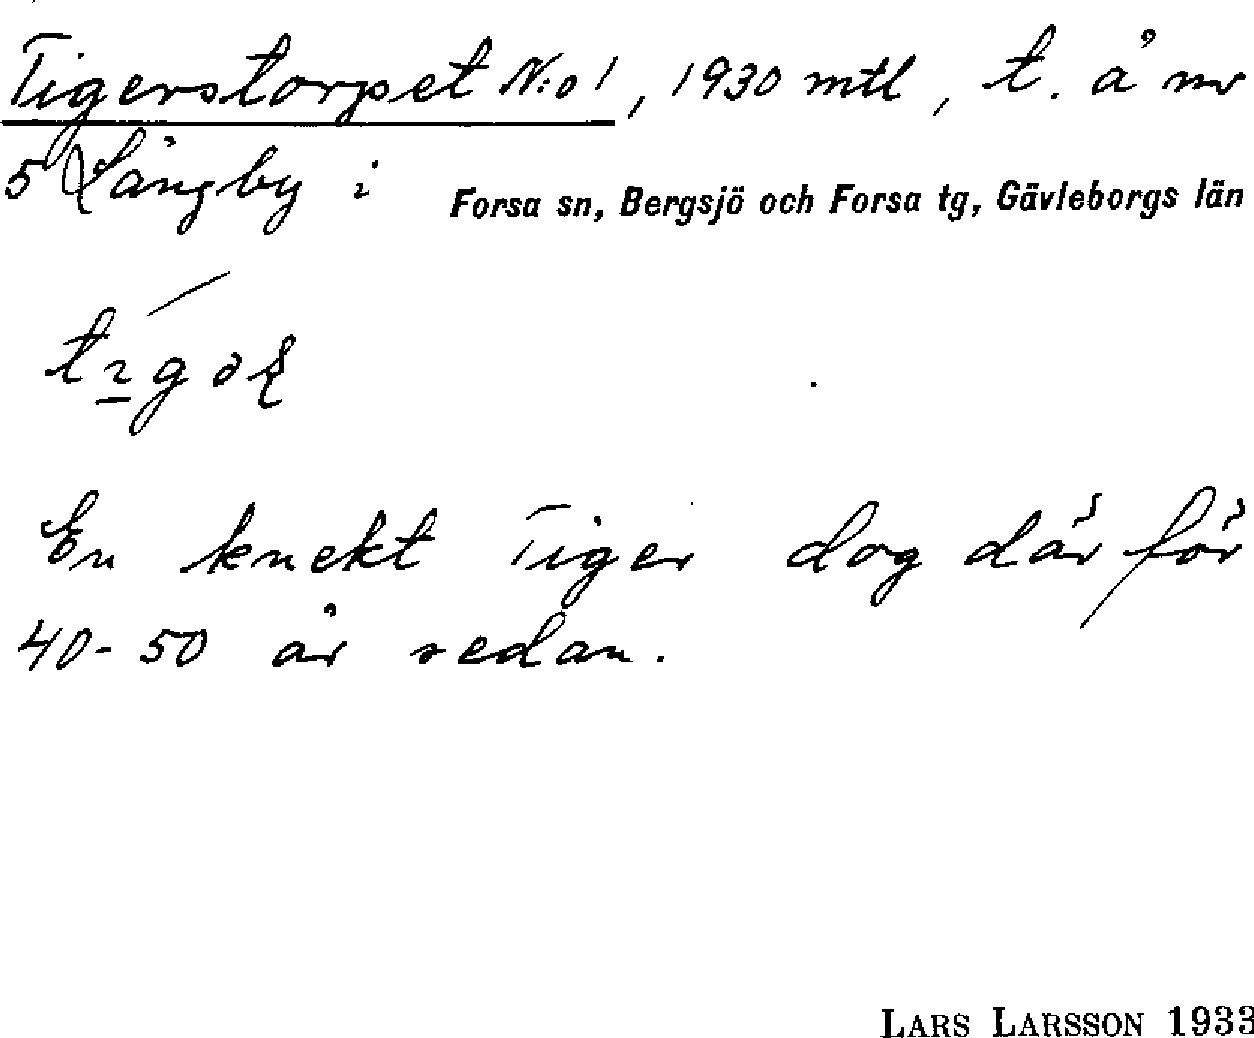 Tigerstorpet N:o 1, 1930 mtl, t. å nr
5 Långby i Forsa sn, Bergsjö och Forsa tg, Gävleborgs län
En knekt Tiger dog där för
40-50 år sedan.
LARS LARSSON 1933